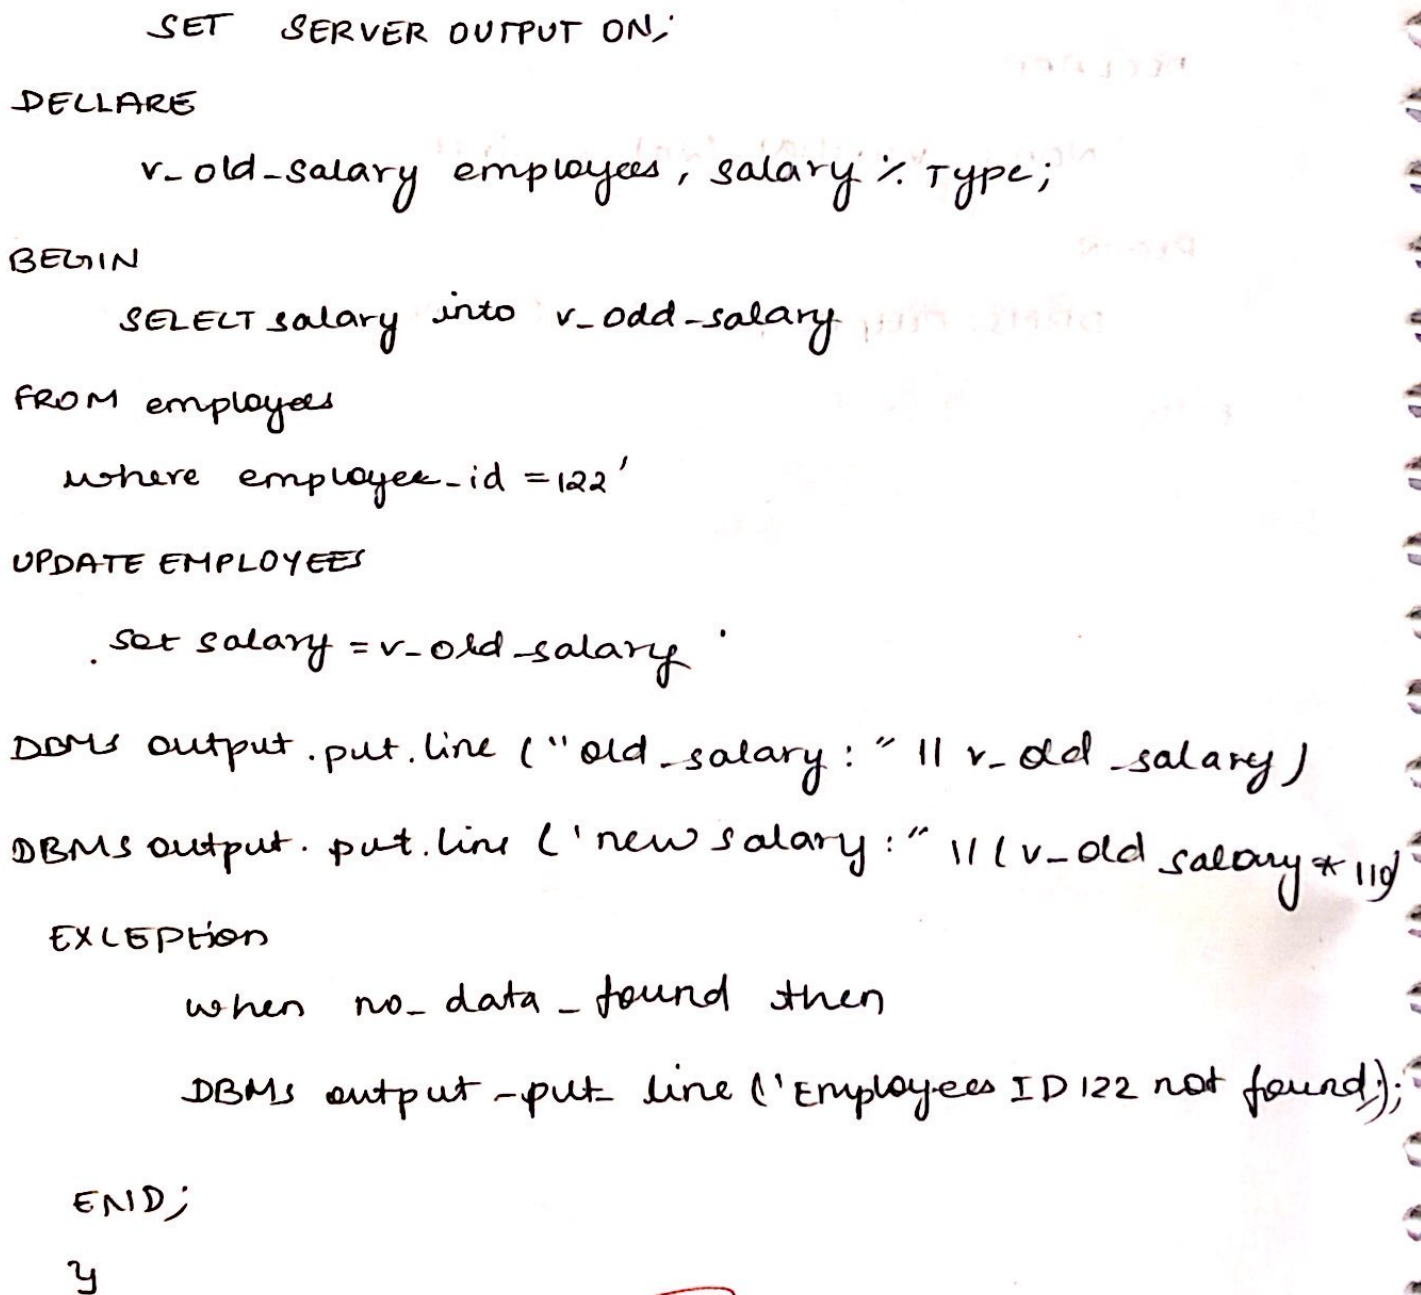 SET SERVER OUTPUT ON;
DELLARE
v_old_salary employees, salary % Type;
BEGIN
SELELT salary into v_odd_salary
FROM employees
where employee_id =122'
UPDATE EMPLOYEES
set salary = v_old_salary
DBMS output.put.line ("old_salary:" || v_old_salary)
DBMS output. put.line ('new salary:" || (v_old salary *
EXLEPtion
when no_data_found then
DBMS output -put_ line ('Employees ID 122 not found');
END;